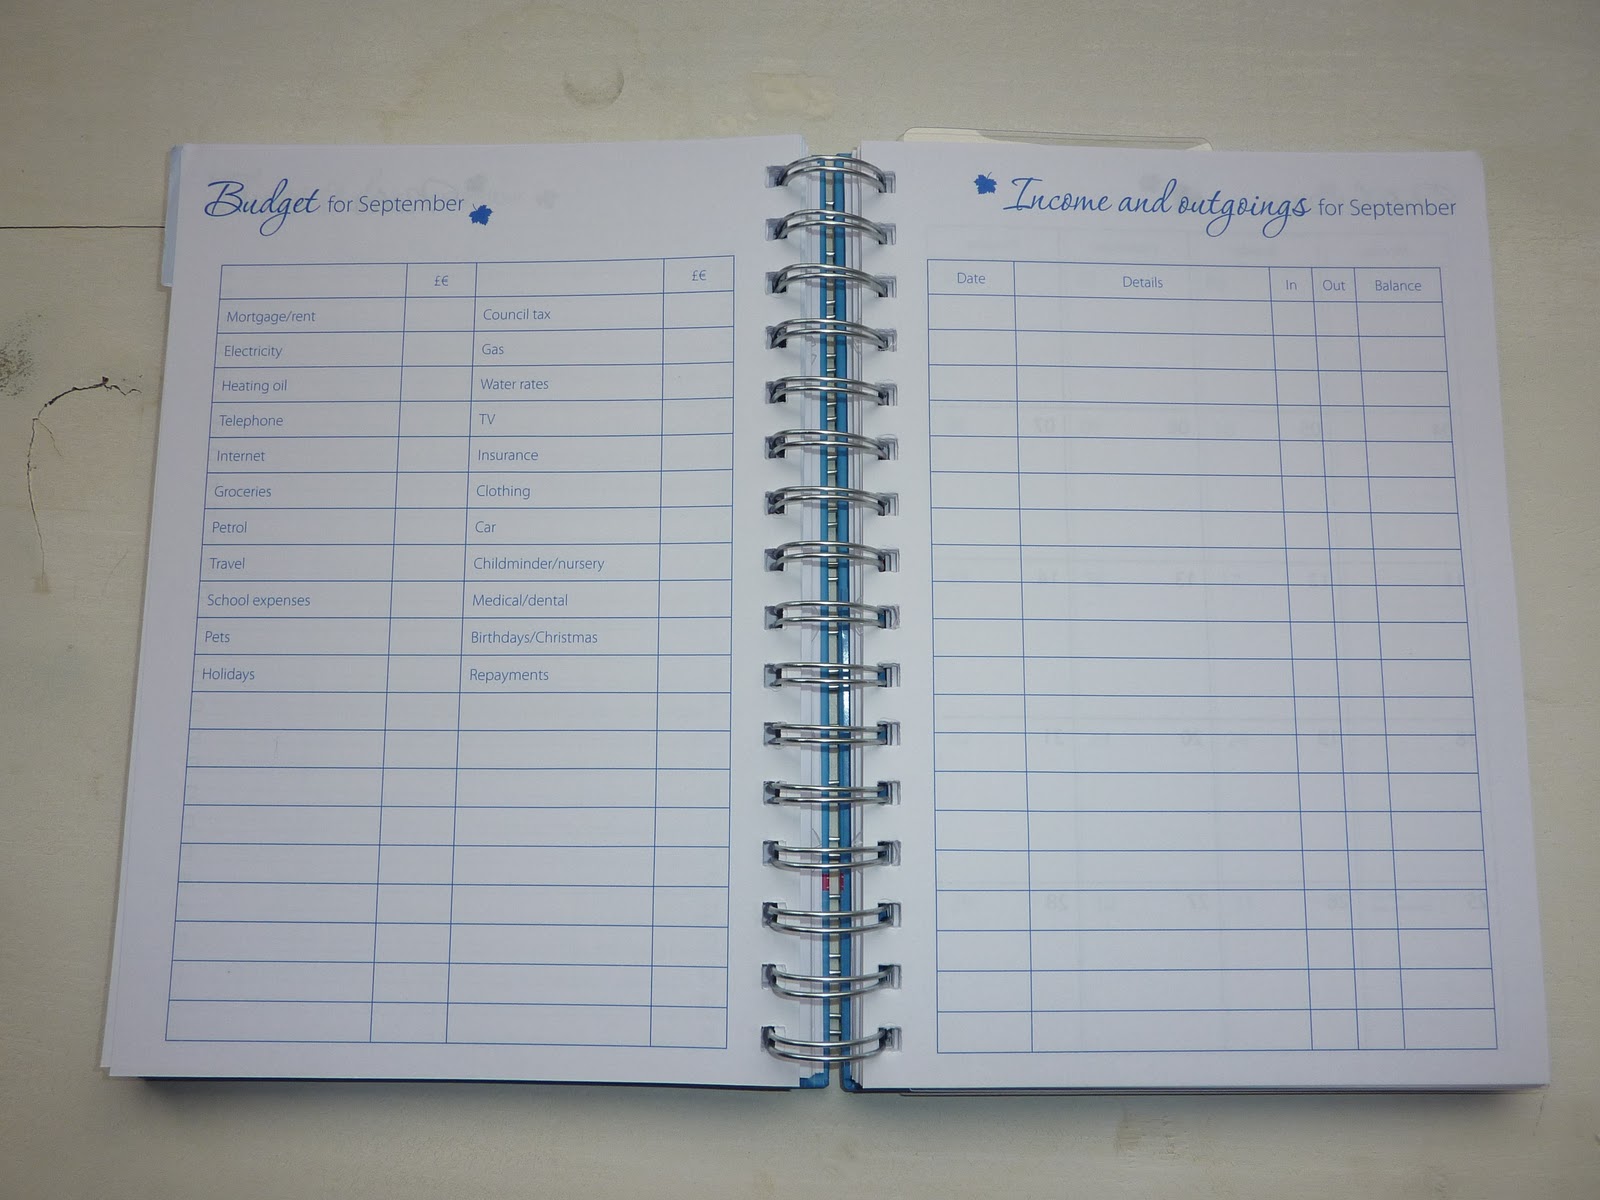 Budget for September
£€ £€
Mortgage/rent Council tax
Electricity Gas
Heating oil Water rates
Telephone TV
Internet Insurance
Groceries Clothing
Petrol Car
Travel Childminder/nursery
School expenses Medical/dental
Pets Birthdays/Christmas
Holidays Repayments
Income and outgoings for September
Date Details In Out Balance